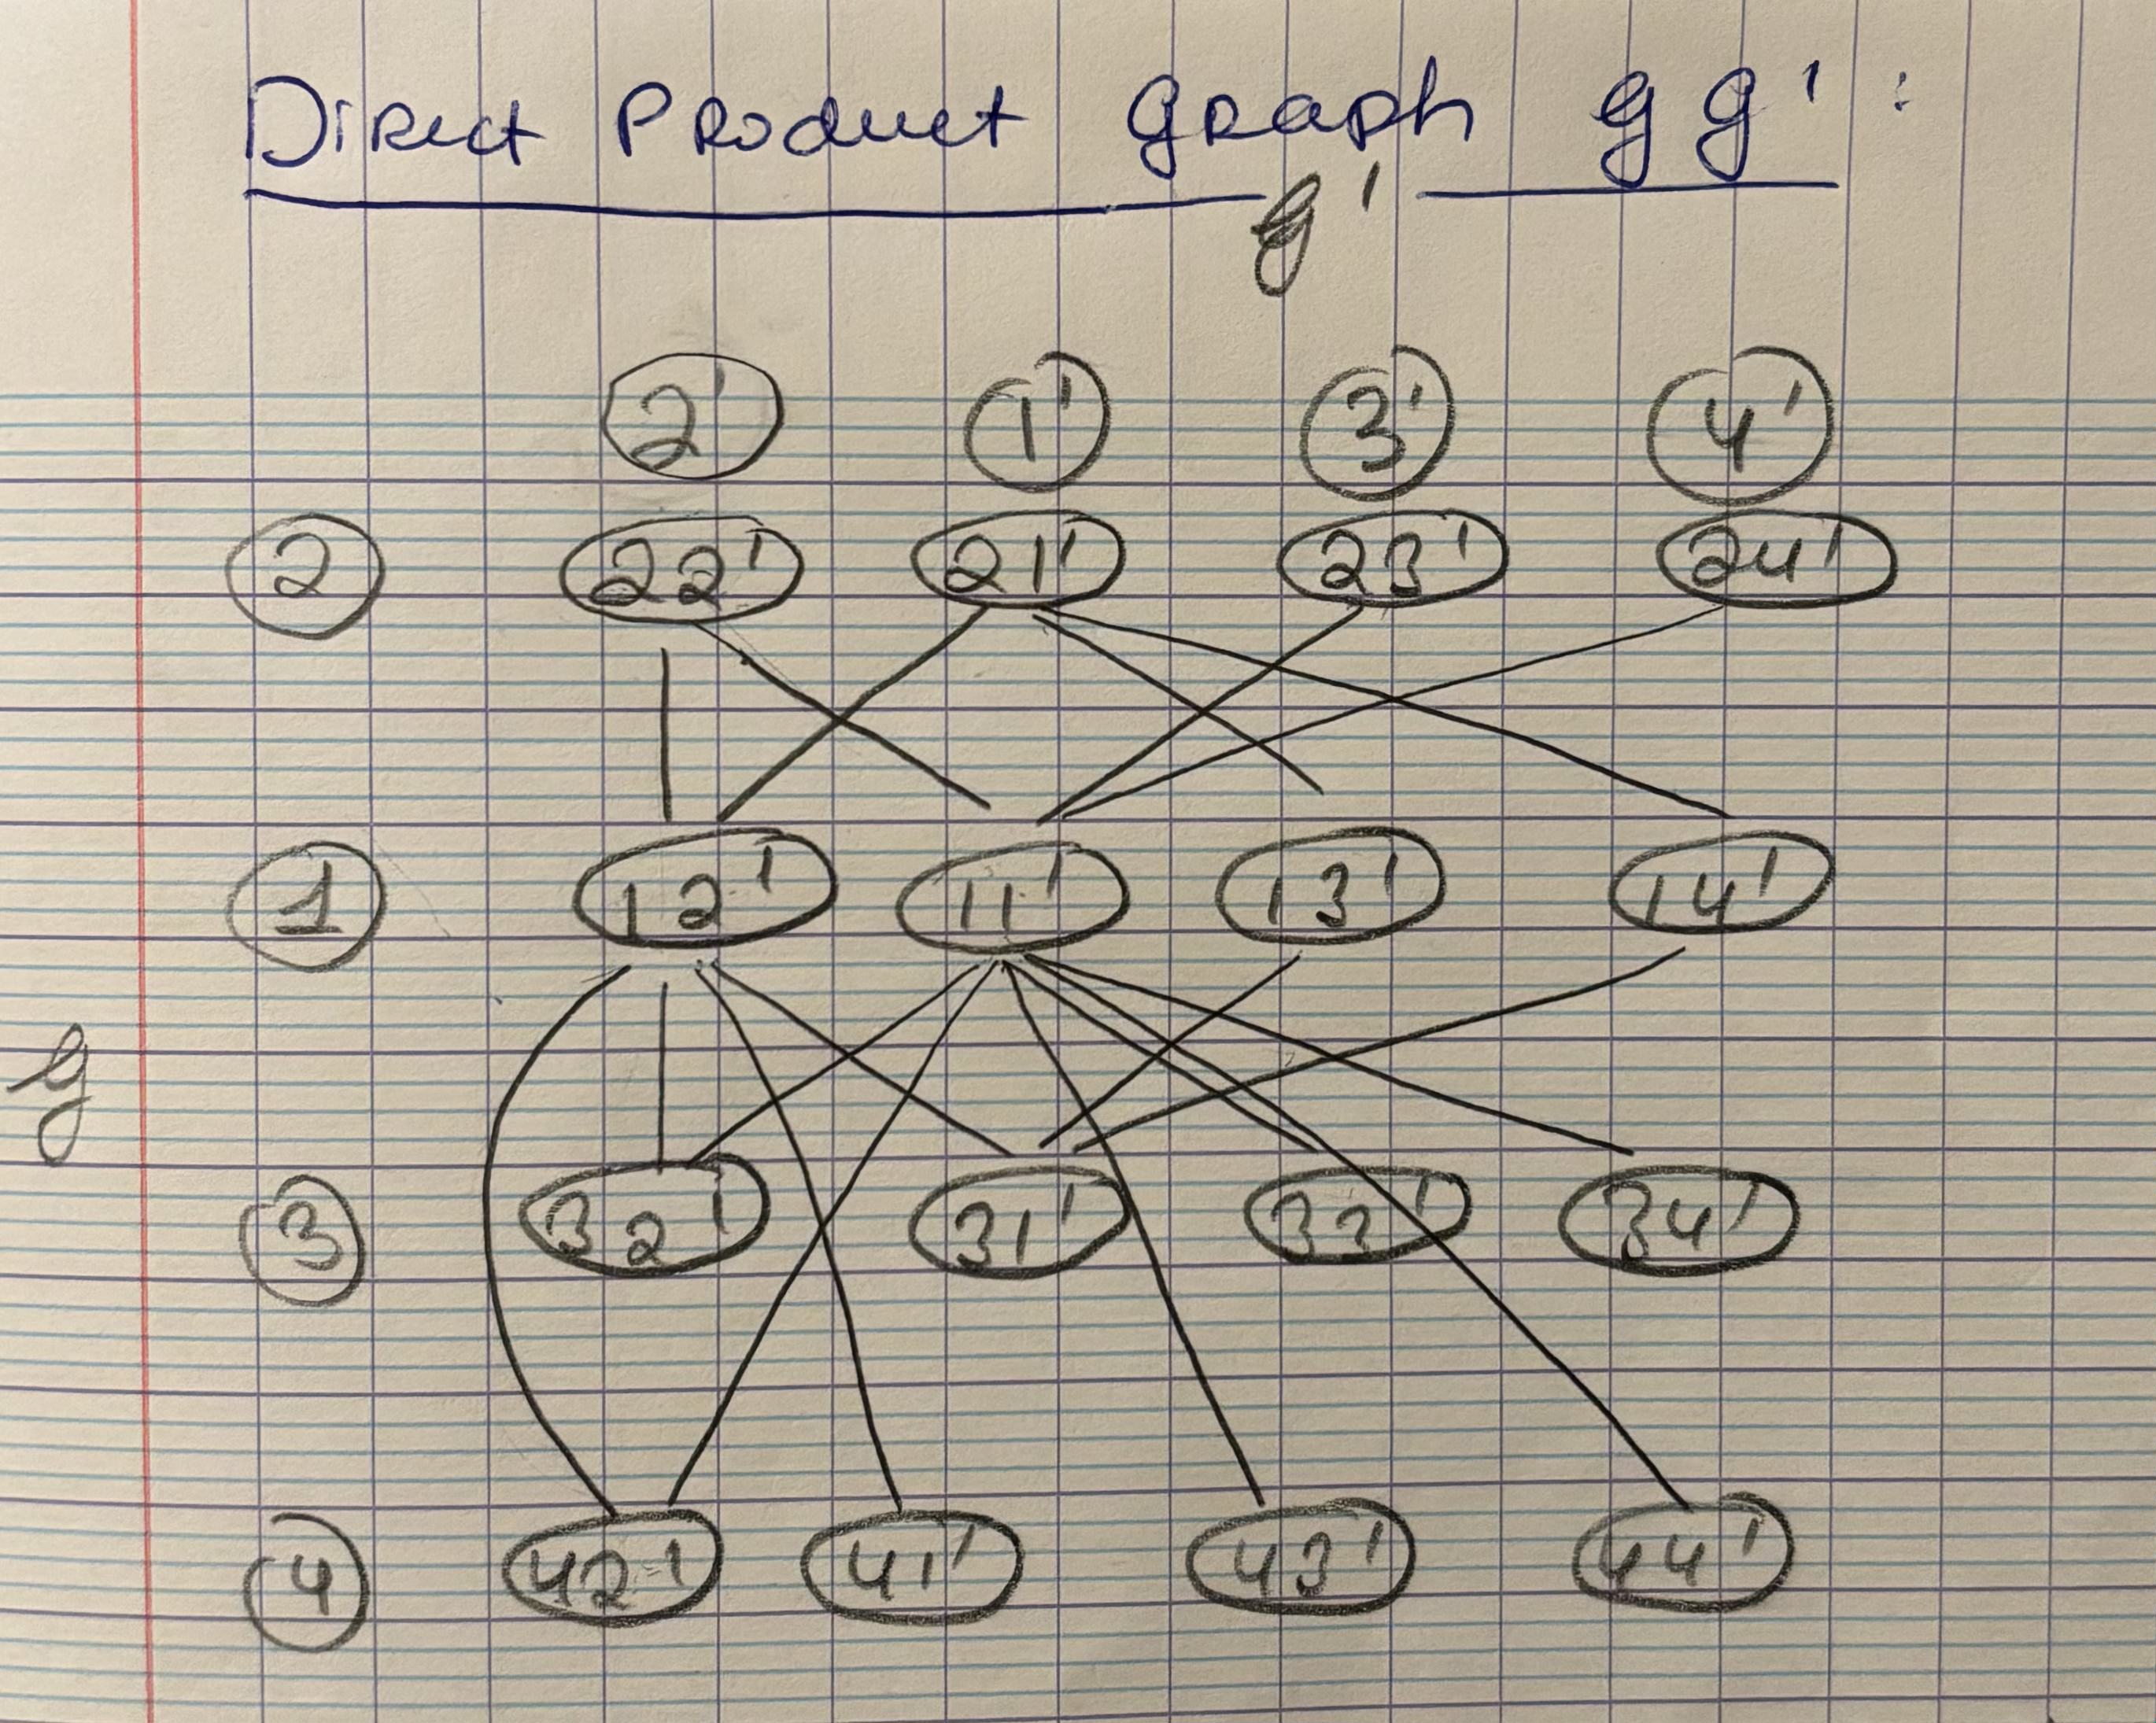 Direct Product graph gg' :
g'
2' 1' 3' 4'
2 22' 21' 23' 24'
1 12' 11' 13' 14'
g
3 32' 31' 33' 34'
4 42' 41' 43' 44'